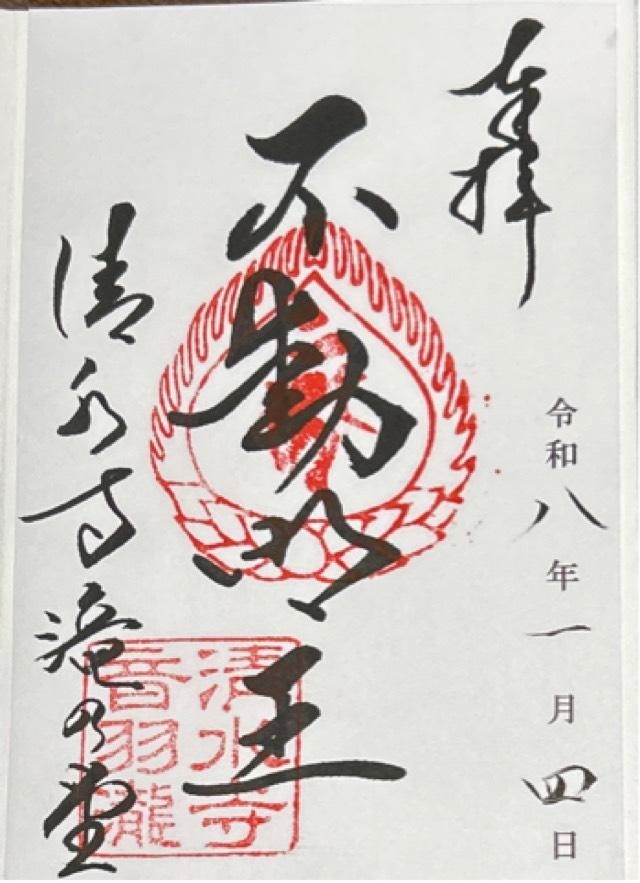 奉拝
令和八年一月四日
不動明王
清水寺滝の堂
清水寺
音羽瀧